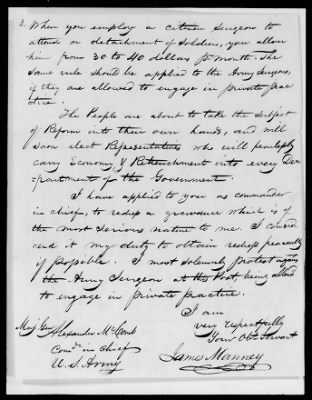 3. When you employ a citizen Surgeon to
attend on detachment of Soldiers, you allow
him from 30 to 40 dollars pr month. The
same rule should be applied to the Army Surgeons,
if they are allowed to engage in private prac
tice.
The People are about to take the subject
of Reform into their own hands, and will
soon elect Representatives who will fearlessly
carry Economy, & Retrenchment into every De
partment for the Government.
I have applied to you as commander
in chief, to redress a grievance which is of
the most serious nature to me. I consid
ered it my duty to obtain redress peaceably
if possible. I most solemnly protest against
the Army Surgeon at this Post, being allowed
to engage in private practice.
I am
very respectfully
Your Obt Servant
James Manney
Maj Gen Alexander McComb
Comdr in Chief
U. S. Army